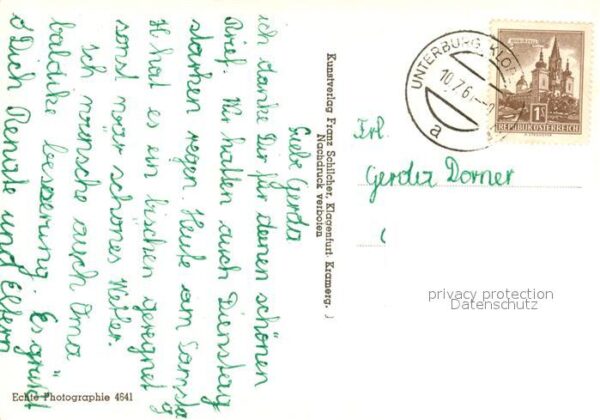 Liebe Gerda
ich danke Dir für deinen schönen
Brief. Wir hatten auch Dienstag
starken regen. Heute am Samsta
g
H hat es ein bischen geregnet
sonst wäar schönes Wetter.
Ich wünsche auch Oma
baldike besserung. Es grüßt
Dich Renate und Eltern
Kunstverlag Franz Schilcher, Klagenfurt. Kramerg.
Nachdruck verboten
Echte Photographie 4641
UNTERBURG, KLOP
10.7.6
a
1S
REPUBLIK ÖSTERREICH
Frl.
Gerda Dorner
privacy protection
Datenschutz